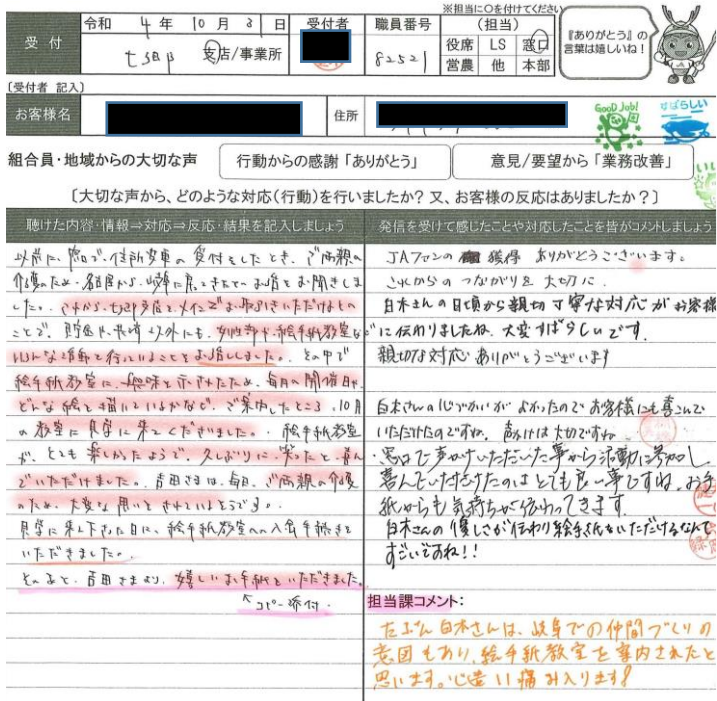 ※担当に○を付けてください
受付
令和 4年 10月 31日
七郷 支店/事業所
受付者
職員番号
82521
(担当)
役席 LS 窓口
営農 他 本部
『ありがとう』の
言葉は嬉しいね!
〔受付者 記入〕
お客様名
住所
GooD Job!
すばらしい
組合員・地域からの大切な声
行動からの感謝「ありがとう」
意見/要望から「業務改善」
〔大切な声から、どのような対応(行動)を行いましたか? 又、お客様の反応はありましたか?〕
聴けた内容・情報⇒対応⇒反応・結果を記入しましょう
以前に、窓口で、住所変更の受付をしたとき、ご両親の
介護のため、名古屋から、岐阜に戻ってきたというお話をお聞きしま
した。これから、七郷支店をメインでお取引きいただけるとの
ことで、貯金や、共済以外にも、女性部や、絵手紙教室な
いろんな活動を行っていることをお話ししました。その中で
絵手紙教室に、興味を示されたため、毎月の開催日や、
どんな絵を描いているかなど、ご案内したところ、10月
の教室に見学に来てくださいました。絵手紙教室
が、とても楽しかったようで、久しぶりに、笑ったと喜ん
でいただけました。吉田さまは、毎日、ご両親の介護
のため、大変な思いをされているようです。
見学に来て下さった日に、絵手紙教室への入会手続きを
いただきました。
そのあと、吉田さまより、嬉しいお手紙をいただきました。
コピー添付
発信を受けて感じたことや対応したことを皆がコメントしましょう
JAファンの 獲得 ありがとうございます。
これからのつながりを大切に。
白木さんの日頃から親切丁寧な対応がお客様
に伝わりましたね。大変すばらしいです。
親切な対応ありがとうございます
白木さんの心づかいがよかったのでお客様にも喜こんで
いただけたのですね。声かけは大切ですね
・窓口で声かけいただいた事から活動に参加し、
喜んでいただけたのはとても良い事ですね。お手
紙からも気持ちが伝わってきます。
白木さんの優しさが伝わり絵手紙をいただけるなんて
すごいですね!!
担当課コメント:
たぶん白木さんは、岐阜での仲間づくりの
意図もあり、絵手紙教室を案内されたと
思います。心遣い痛み入ります